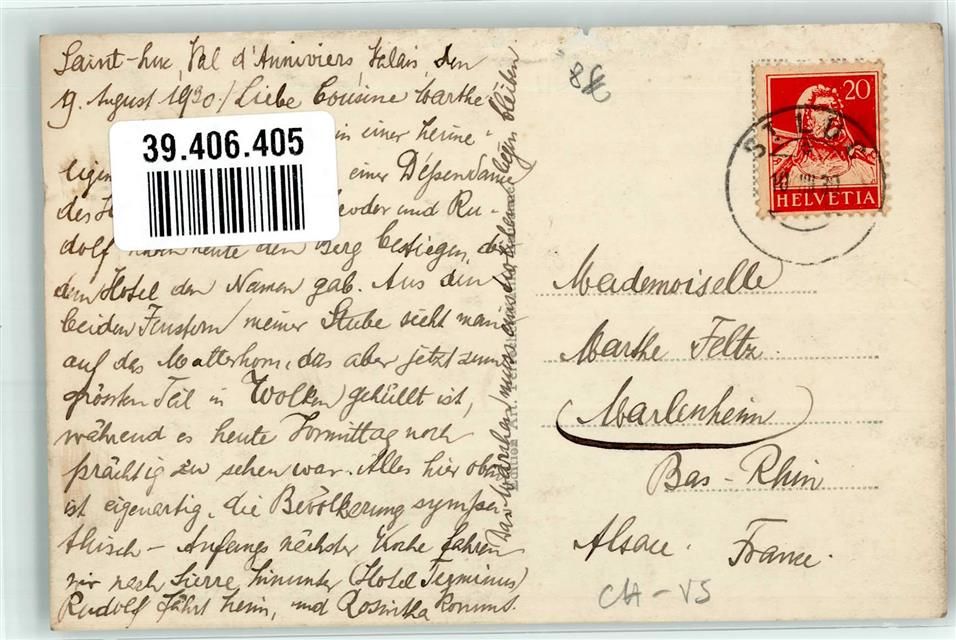 Saint-Luc, Val d'Anniviers, Valais, den
9. August 1930./Liebe Cousine Marthe
39.406.405
in einer heime-
ligen einer Dépendance
des H und Ru-
dolf haben heute den Berg bestiegen, der
dem Hotel den Namen gab. Aus den
beiden Fenstern meiner Stube sieht man
auf das Matterhorn, das aber jetzt zum
grössten Teil in Wolken gehüllt ist,
während es heute Vormittag noch
prächtig zu sehen war. Alles hier oben
ist eigenartig, die Bevölkerung sympa-
thisch – Anfangs nächster Woche fahren
wir nach Sierre hinunter (Hotel Terminus)
Rudolf fährt heim, und Rosintha kommt.
Das Märchen muss liegen bleiben
20
HELVETIA
ST. LUC
10 VIII 30
Mademoiselle
Marthe Feltz
(Marlenheim)
Bas-Rhin
Alsace. France.
CH-VS